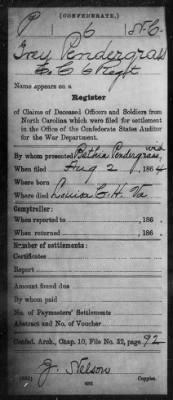 (CONFEDERATE.)
P 6 N.C.
Gray Pendergrass
Name appears on a
Register
of Claims of Deceased Officers and Soldiers from
North Carolina which were filed for settlement
in the Office of the Confederate States Auditor
for the War Department.
By whom presented Bethia Pendergrass, wid
When filed Aug 2, 1864
Where born
Where died Louisa C. H. Va
Comptroller:
When reported to , 186 .
When returned , 186 .
Number of settlements:
Certificates
Report
Amount found due
By whom paid
No. of Paymasters' Settlements
Abstract and No. of Voucher
Confed. Arch., Chap. 10, File No. 32, page 92
J. Nelson
Copyist.